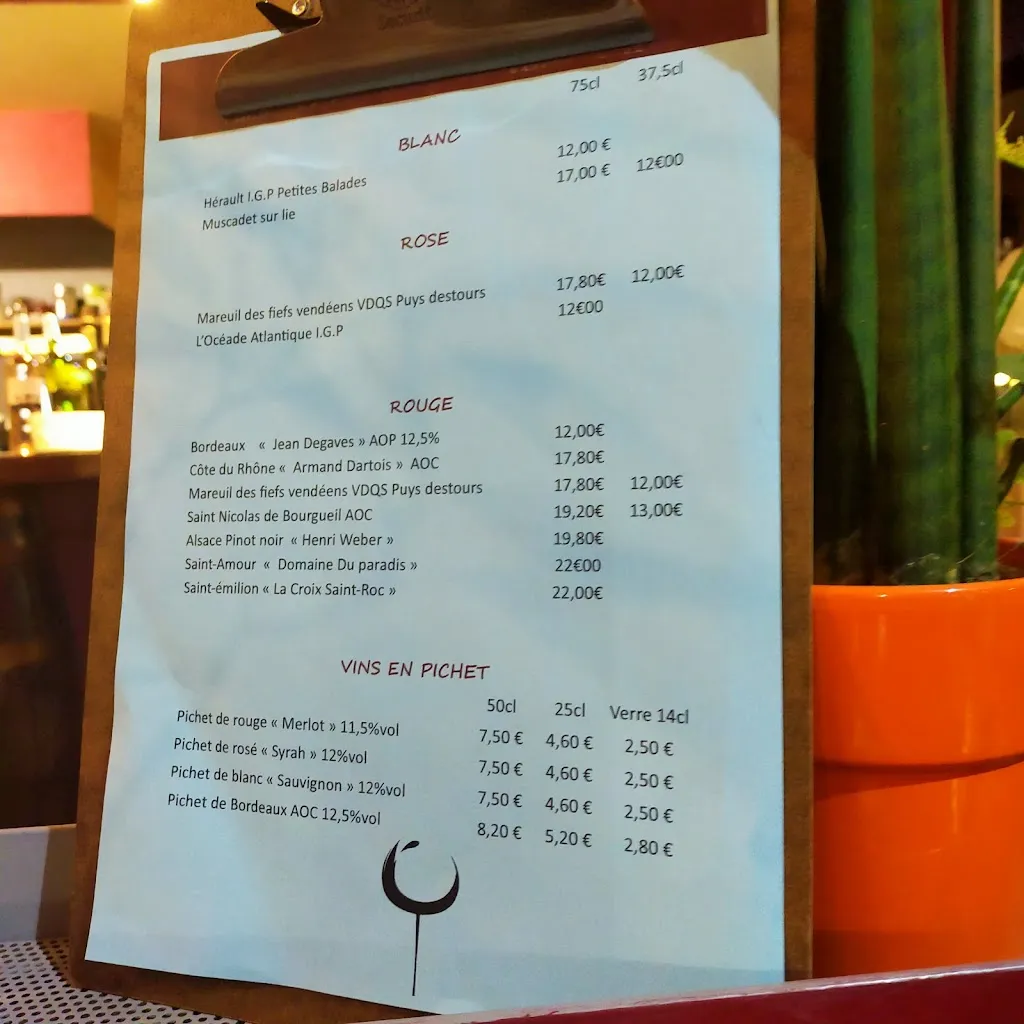 75cl 37,5cl
BLANC
Hérault I.G.P Petites Balades 12,00 €
Muscadet sur lie 17,00 € 12€00
ROSE
Mareuil des fiefs vendéens VDQS Puys destours 17,80€ 12,00€
L'Océade Atlantique I.G.P 12€00
ROUGE
Bordeaux « Jean Degaves » AOP 12,5% 12,00€
Côte du Rhône « Armand Dartois » AOC 17,80€
Mareuil des fiefs vendéens VDQS Puys destours 17,80€ 12,00€
Saint Nicolas de Bourgueil AOC 19,20€ 13,00€
Alsace Pinot noir « Henri Weber » 19,80€
Saint-Amour « Domaine Du paradis » 22€00
Saint-émilion « La Croix Saint-Roc » 22,00€
VINS EN PICHET
50cl 25cl Verre 14cl
Pichet de rouge « Merlot » 11,5%vol 7,50 € 4,60 € 2,50 €
Pichet de rosé « Syrah » 12%vol 7,50 € 4,60 € 2,50 €
Pichet de blanc « Sauvignon » 12%vol 7,50 € 4,60 € 2,50 €
Pichet de Bordeaux AOC 12,5%vol 8,20 € 5,20 € 2,80 €